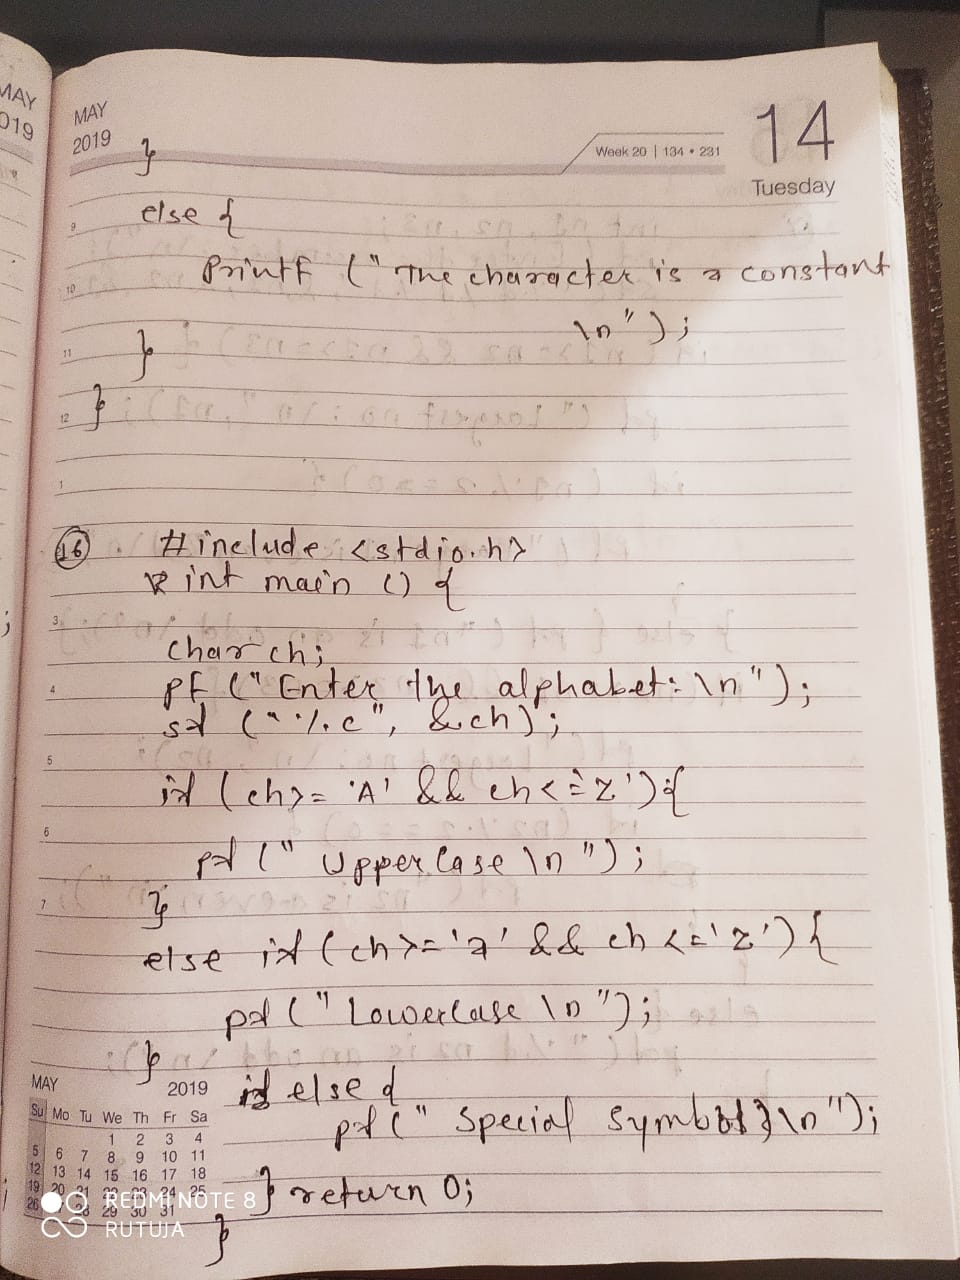 MAY
2019
MAY
2019
14
Week 20 | 134 • 231
Tuesday
}
9
else {
10
Printf ("The character is a constant
\n");
11
}
12
}
1
16
#include <stdio.h>
int main () {
3
char ch;
4
pf ("Enter the alphabet: \n");
sf ("%c", &ch);
5
if (ch>= 'A' && ch<='Z'){
6
pf (" Uppercase \n ");
7
}
else if (ch>='a' && ch <='z') {
pf (" Lowercase \n ");
}
else {
pf (" Special Symbol \n");
} return 0;
}
MAY 2019
Su Mo Tu We Th Fr Sa
1 2 3 4
5 6 7 8 9 10 11
12 13 14 15 16 17 18
19 20 21 22 23 24 25
26 28 29 30 31
REDMI NOTE 8
RUTUJA